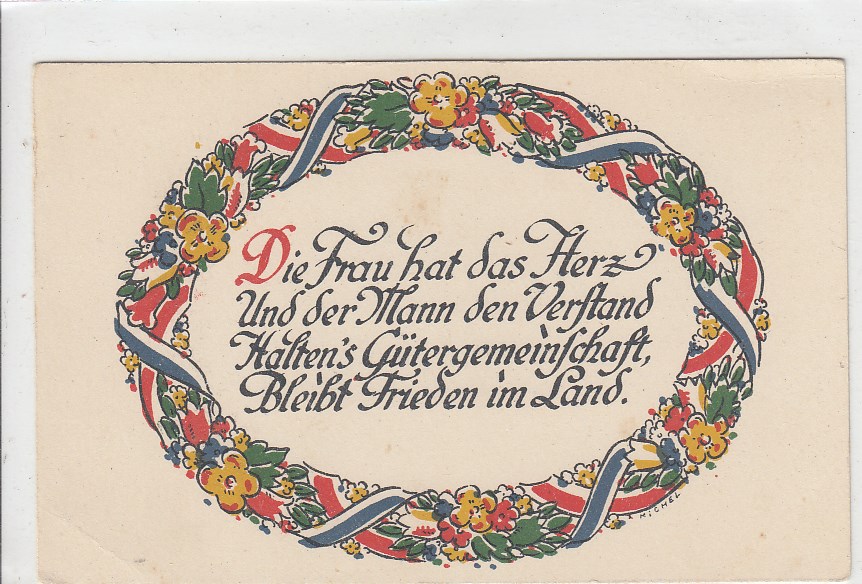 Die Frau hat das Herz
Und der Mann den Verstand
Halten's Gütergemeinschaft,
Bleibt Frieden im Land.
MICHEL